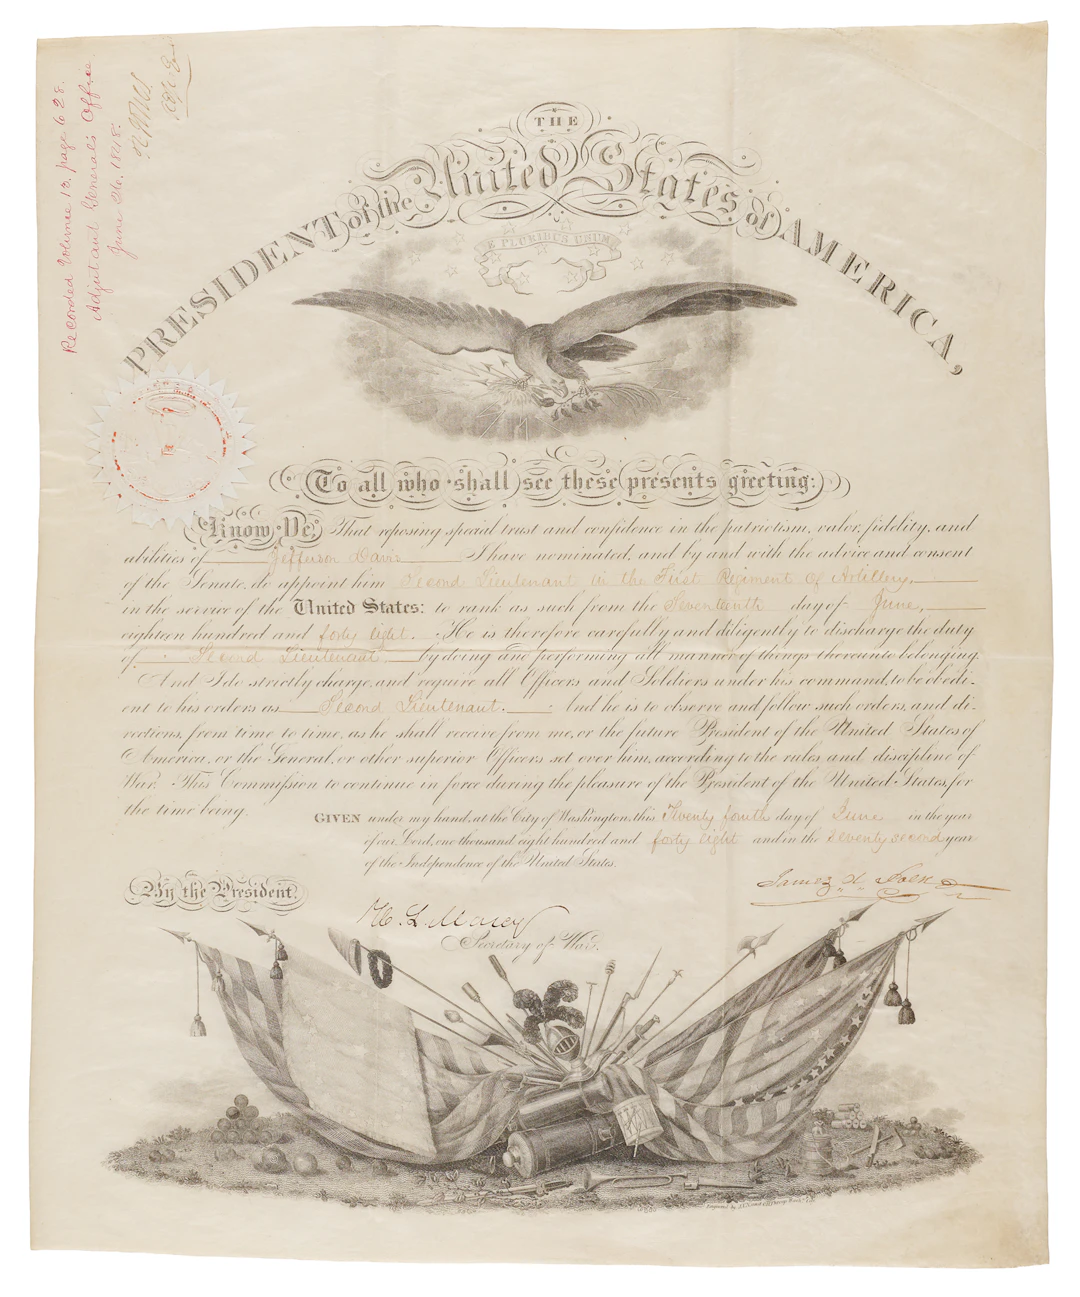 Recorded Volume 13. page 628.
Adjutant General's Office
June 26. 1848.
THE
PRESIDENT of the United States of AMERICA,
E PLURIBUS UNUM
To all who shall see these presents greeting:
Know Ye, That reposing special trust and confidence in the patriotism, valor, fidelity, and
abilities of Jefferson Davis I have nominated, and by and with the advice and consent
of the Senate, do appoint him Second Lieutenant in the First Regiment of Artillery,
in the service of the United States: to rank as such from the Seventeenth day of June,
eighteen hundred and forty eight. He is therefore carefully and diligently to discharge the duty
of Second Lieutenant by doing and performing all manner of things thereunto belonging.
And I do strictly charge, and require all Officers and Soldiers under his command, to be obedi-
ent to his orders as Second Lieutenant. And he is to observe and follow such orders, and di-
rections, from time to time, as he shall receive from me, or the future President of the United States of
America, or the General, or other superior Officers set over him, according to the rules and discipline of
War. This Commission to continue in force during the pleasure of the President of the United States, for
the time being.
GIVEN under my hand, at the City of Washington, this Twenty fourth day of June in the year
of our Lord, one thousand eight hundred and forty eight and in the Seventy second year
of the Independence of the United States.
By the President,
James K. Polk
W. L. Marcy
Secretary of War.